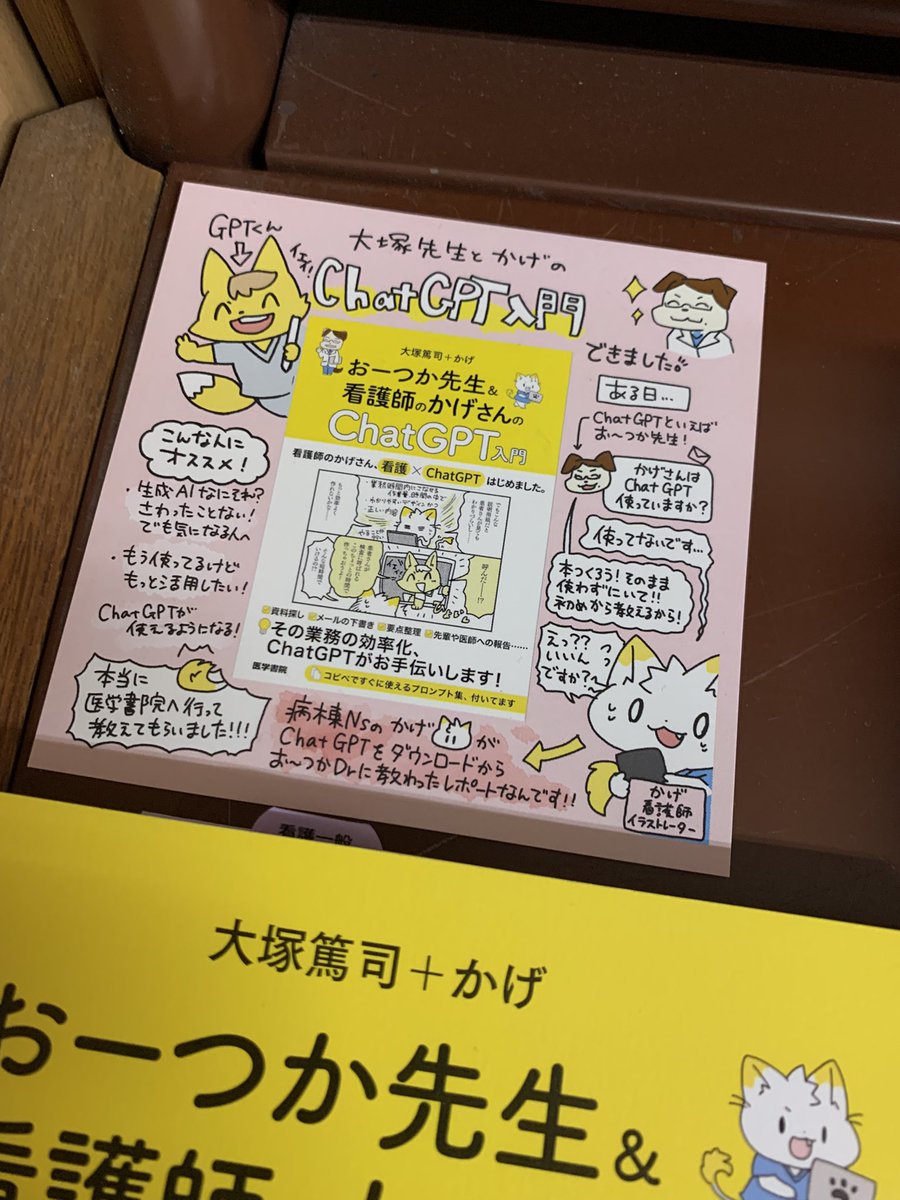 GPTくん
イエイ!
大塚先生とかげの
ChatGPT入門
できました。
大塚篤司+かげ
おーつか先生&
看護師のかげさんの
ChatGPT入門
看護師のかげさん、看護×ChatGPT はじめました。
呼んだーー!?
資料探し メールの下書き 要点整理 先輩や医師への報告……
その業務の効率化、
ChatGPTがお手伝いします!
医学書院
コピペですぐに使えるプロンプト集、付いてます
こんな人に
オススメ!
・生成AIなにそれ?
さわったことない!
でも気になる人へ
・もう使ってるけど
もっと活用したい!
ChatGPTが
使えるようになる!
本当に
医学書院へ行って
教えてもらいました!!!
ある日…
ChatGPTといえば
お〜つか先生!
かげさんは
ChatGPT
使っていますか?
使ってないです…
本つくろう!そのまま
使わずにいて!!
初めから教えるから!
えっ??
いいん
ですか?〜
病棟Nsのかげが
ChatGPTをダウンロードから
お〜つかDrに教わったレポートなんです!!
かげ
看護師
イラストレーター
看護一般
大塚篤司+かげ
おーつか先生&
看護師